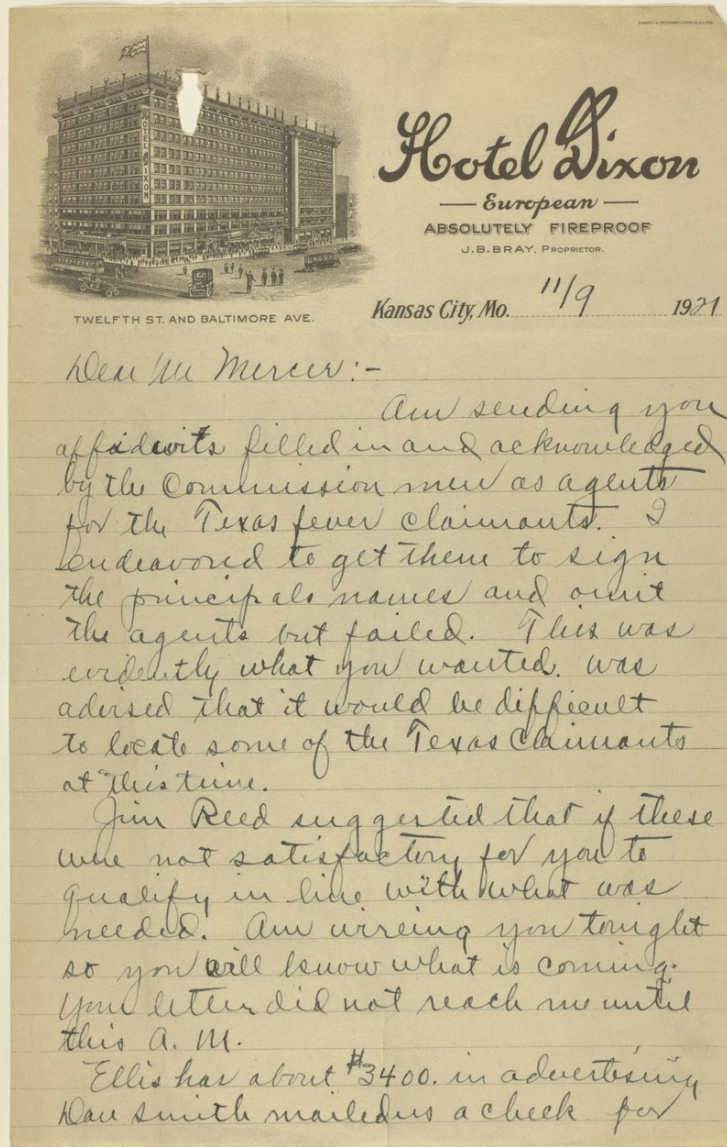 HOTEL DIXON
Hotel Dixon
European
ABSOLUTELY FIREPROOF
J.B. BRAY, PROPRIETOR.
TWELFTH ST. AND BALTIMORE AVE.
Kansas City, Mo. 11/9 1921
Dear Mr Mercer:-
Am sending you
affidavits filled in and acknowledged
by the Commission men as agents
for the Texas fever claimants. I
endeavored to get them to sign
the principals names and omit
the agents but failed. This was
evidently what you wanted. was
advised that it would be difficult
to locate some of the Texas Claimants
at this time.
Jim Reed suggested that if these
were not satisfactory for you to
qualify in line with what was
needed. Am wireing you tonight
so you will know what is coming.
Your letter did not reach me until
this A. M.
Ellis has about $3400. in advertising
Dan Smith mailed us a check for